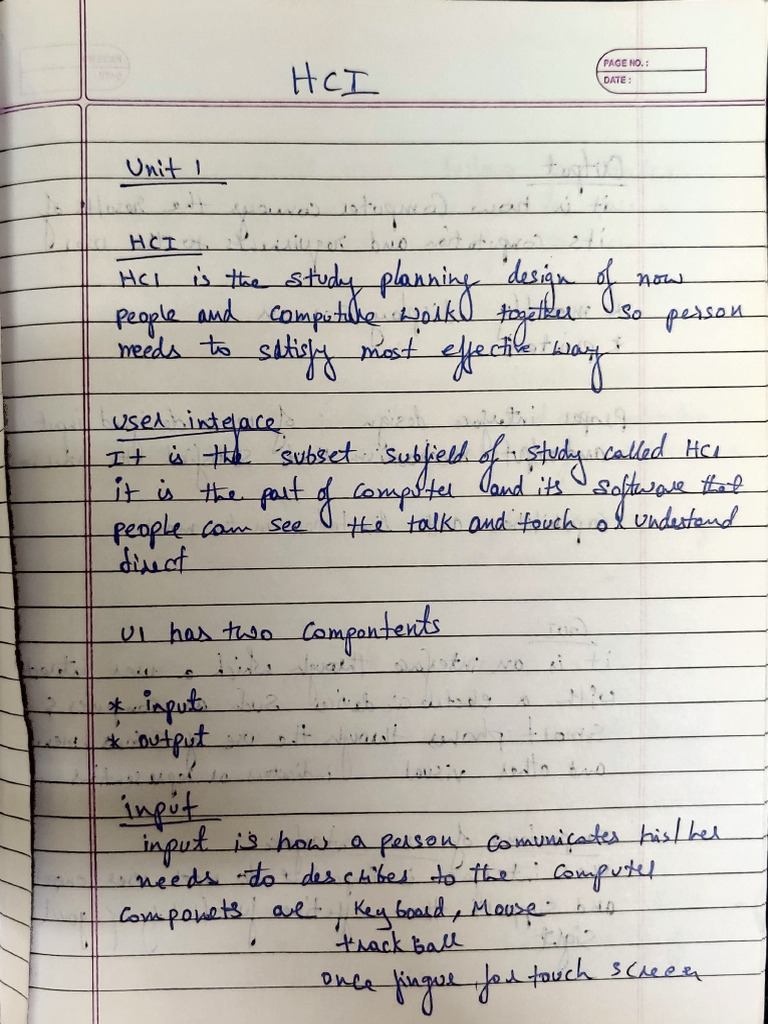 HCI
PAGE NO. :
DATE :
Unit 1
HCI
HCI is the study planning design of now
people and computure work together so person
needs to satisfy most effective way.
user inteface
It is the subset subfield of study called HCI
it is the part of computer and its software that
people can see the talk and touch or undestand
direct
UI has two compontents
* input
* output
input
input is how a person comunicates his/her
needs to describes to the computer
componets are Keyboard, Mouse
track ball
once fingue for touch screen